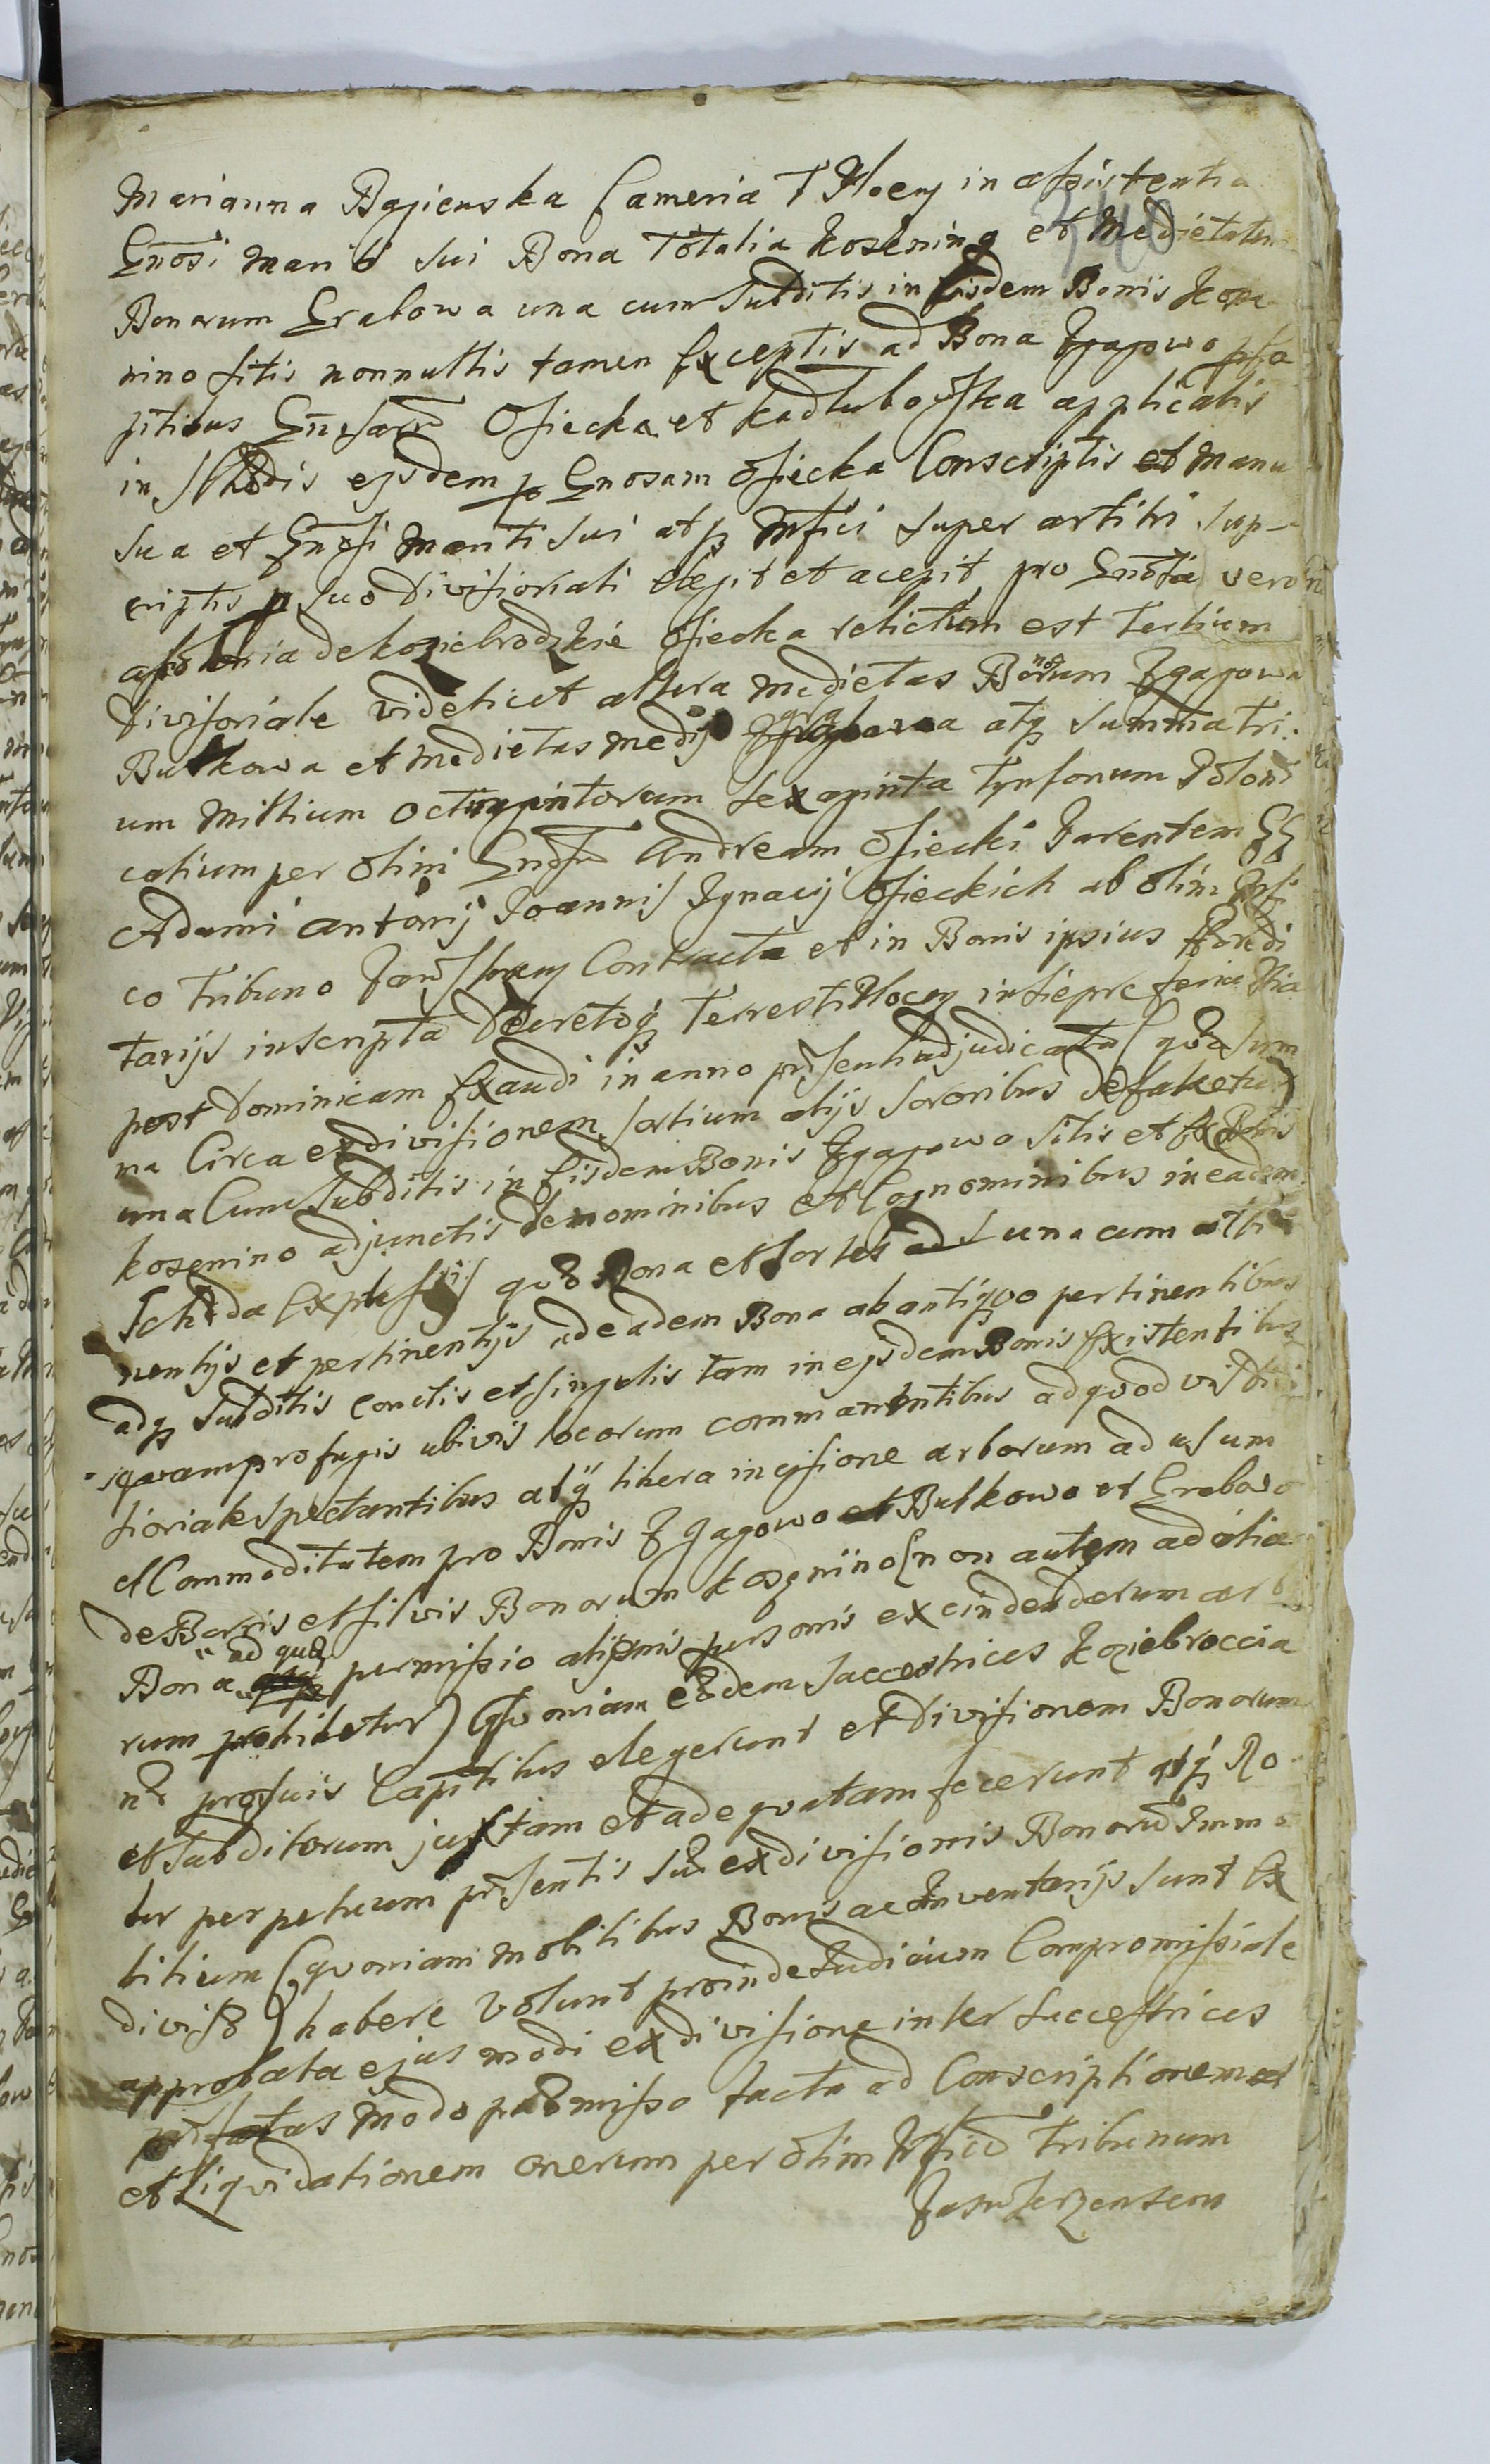 Marianna Bagienska Cameria T Plocen in assistentia
Gnosi mariti sui Bona Totalia Kosenino et Medietatem
Bonorum Grabowa una cum Subditis in Eisdem Bonis Kose
nino sitis nonnullis tamen Exceptis ad Bona Zgagowo
Osiecka et Kadlubowska applicatis
in ejsdem p Gnosam Osiecka Conscriptis et manu
sua et Gnosi Mariti sui atq Mfici super arbitri sup-
criptis p suo divisionali elegit et acepit pro Gnosa vero
apolonia de Koziebrodzkie Osiecka relictum est Tertium
divisoriale videlicet altera Medietas Bonorum Zgagowa
Butkowa et medietas medij grabowa atq summa tri-
um Millium octingintorum sexaginta Tynfonum Poloni
calium per olim Gnosum Andream Osiecki Parentem GG
Adami Antonij Joannis Ignacij Osieckich ab olim
co Tribuno Contracta et in Bonis ipsius
tarijs inscripta decretoq Terrestri Plocen in Sieprc feria IIIia
post Dominicam Exaudi in anno prsenti adjudicata (qua sum
ma Circa exdivisionem sortium alijs sororibus defalcetur)
una Cum Subditis in Eisdem Bonis Zgagowo sitis et Ex Bonis
Kosenino adjunctis de nominibus et Cognominibus in eadem
Scheda Expressis Bona et sortes una cum atti
nentijs et pertinentijs ad eadem Bona ab antiqvo pertinentibus
adq Subditis conctis et singulis tam in ejsdem Bonis Existentibus
qvam profugis ubivis locorum commanentibus ad qvod vis divi
sionale spectantibus atq libera incisione arborum ad usum
et Commoditatem pro Bonis Zgagowo et Butkowo et Grabowo
de Borris et silvis Bonorum Kosenino (non autem ad alia
Bona ad quae permissio alienis personis excindendarum arbo
rum prohibetur) Qvoniam eaedem Successtrices Koziebroccia
nae pro suis Capitibus elegerunt et divisionem Bonorum
et Subditorum justam et adeqvatam fecerunt atq Ro
bur perpetuum prsentis suae exdivisionis Bonorum Immo
bilium (qvoniam mobilibus Bonis ac Inventarijs sunt Ex
divisae) habere volunt proinde Judicium Compromissiale
approbata ejus modi exdivisione inter Successtrices
prfatas modo praemisso facta ad Conscriptionem et
et Liqvidationem onerum per olim Mficum Tribunum